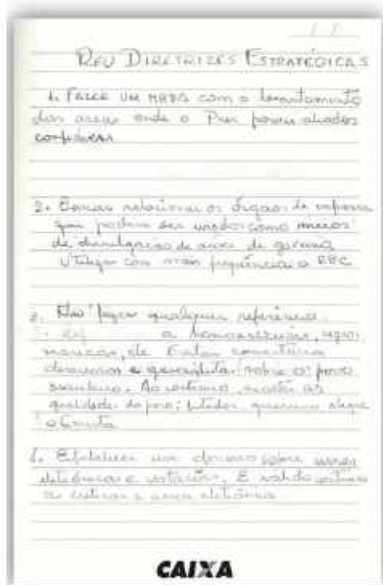 REU DIRETRIZES ESTRATÉGICAS
1. FAZER UM MAPA com o levantamento
das areas onde o Pres possui aliados
confiáveis
2. Buscar relacionar os órgãos de imprensa
que podem ser usados como meios
de divulgação de ações de governo
Utilizar com mais frequência a EBC
3. Não fazer qualquer referência
a homossexuais, negros
maricas, etc. Evitar comentários
sobre os povo
brasileiro. Ao contrário, exaltar as
qualidades do povo: lutador, guerreiro, alegre
6. Estabelecer um discurso sobre urnas
eletrônicas e votações. É válido continuar
a criticar a urna eletrônica
CAIXA